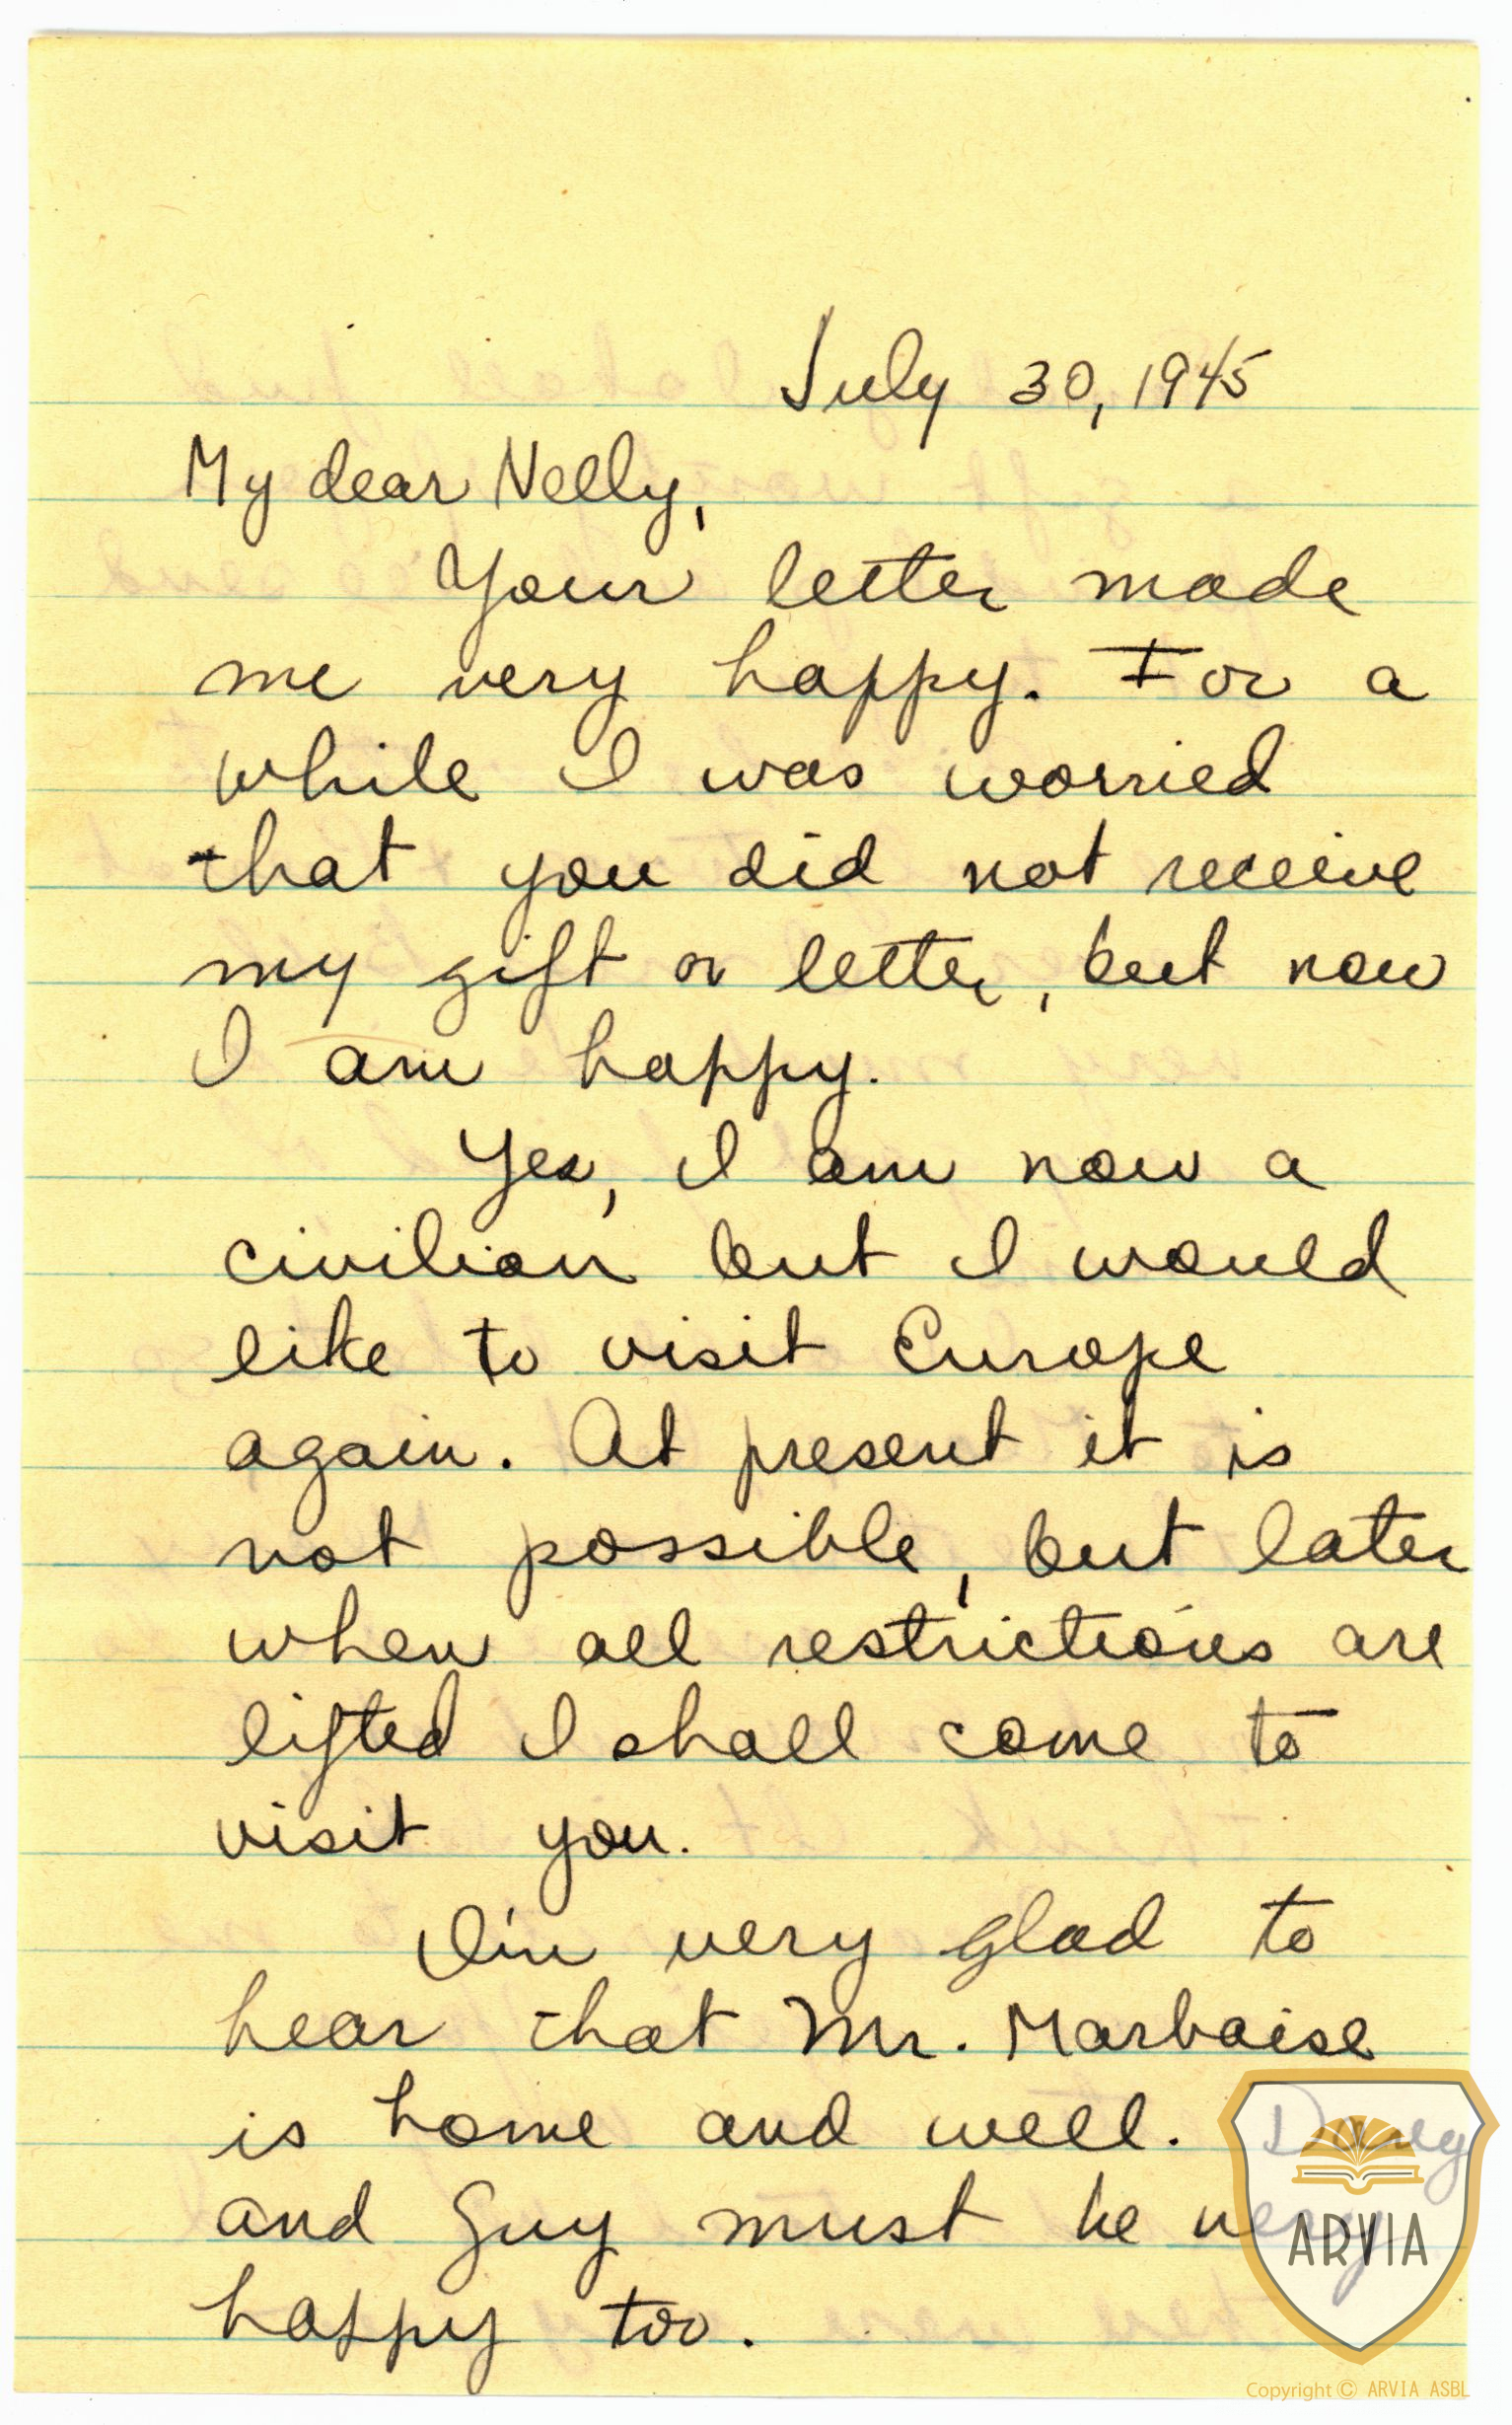 July 30, 1945
My dear Nelly,
Your letter made
me very happy. For a
while I was worried
that you did not receive
my gift or letter, but now
I am happy.
Yes, I am now a
civilian but I would
like to visit Europe
again. At present it is
not possible, but later
when all restrictions are
lifted I shall come to
visit you.
I'm very glad to
hear that Mr. Marbaise
is home and well.
and Guy must be very
happy too.
ARVIA
Copyright © ARVIA ASBL